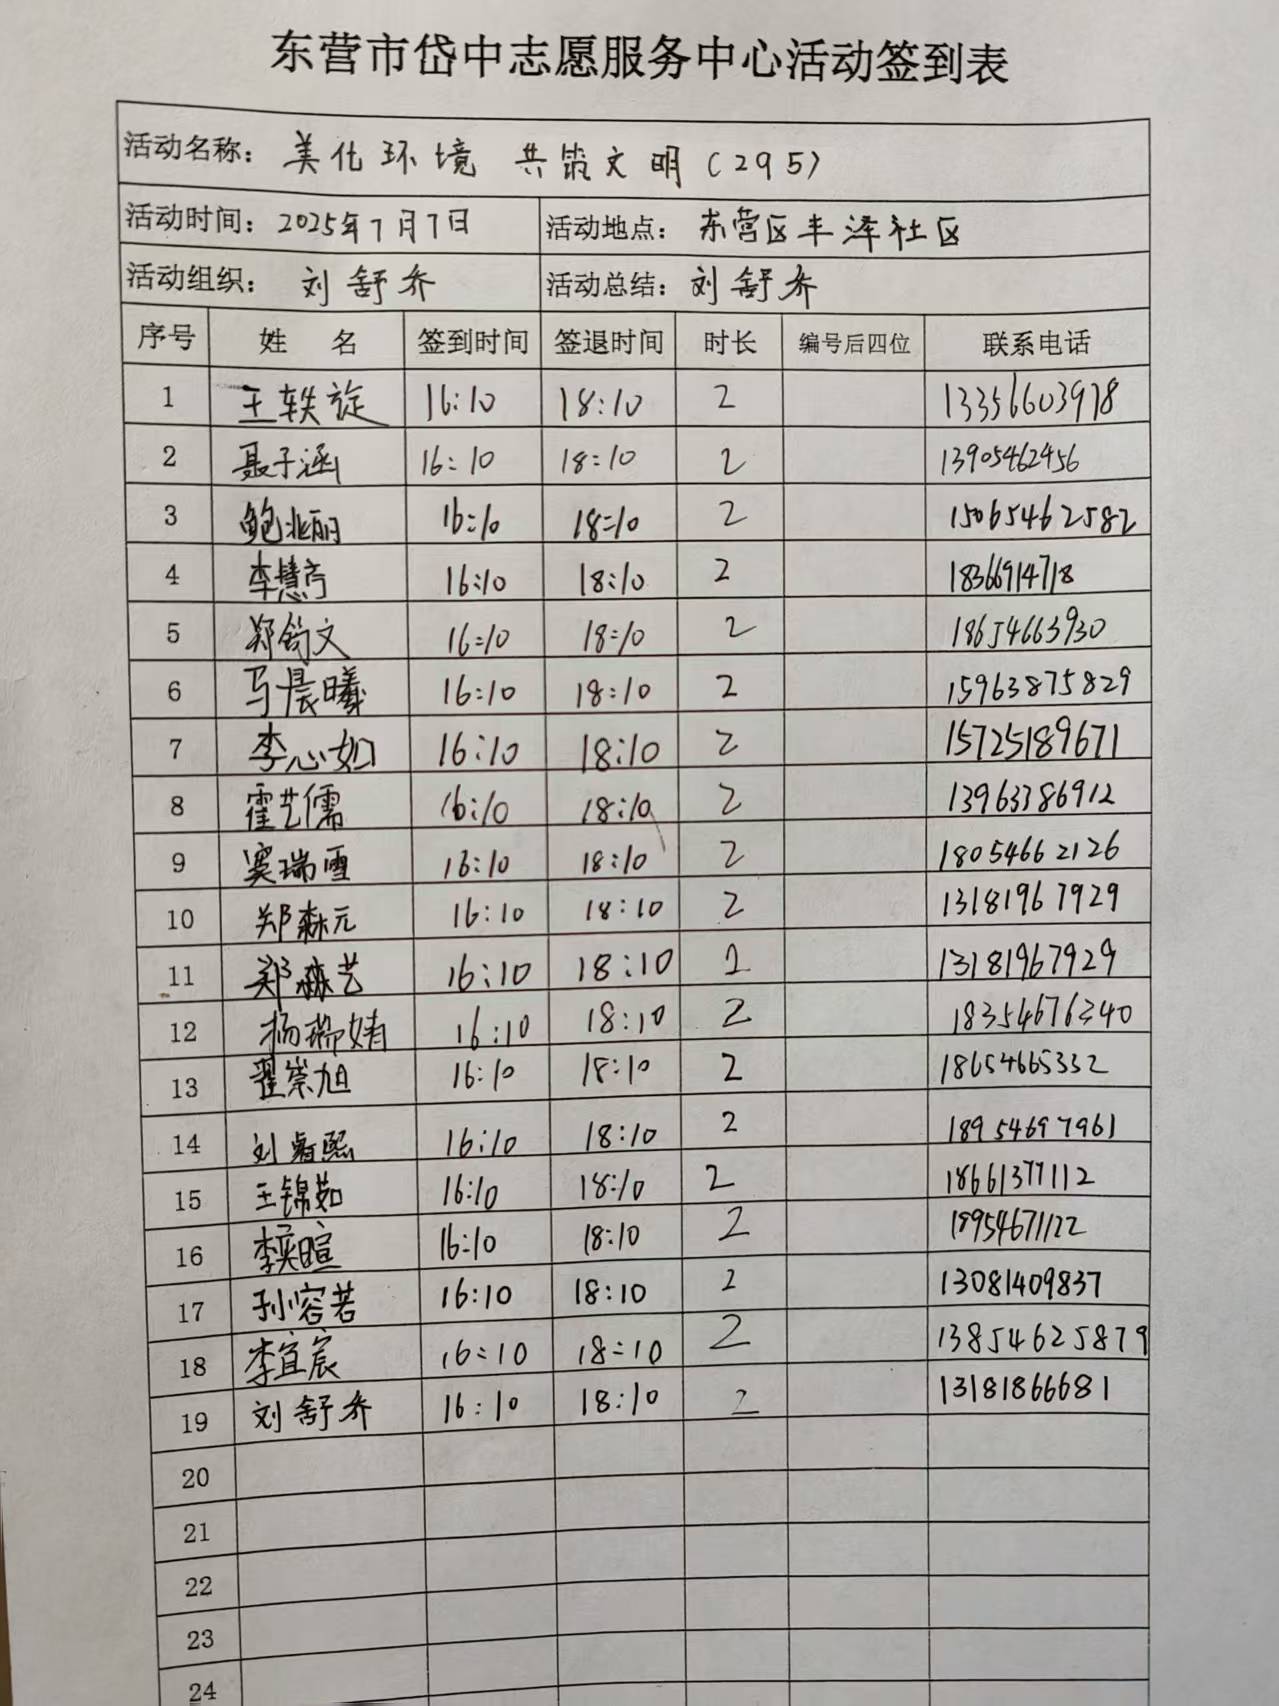 东营市岱中志愿服务中心活动签到表
活动名称: 美化环境 共筑文明(295)
活动时间: 2025年7月7日 活动地点: 东营区丰泽社区
活动组织: 刘舒乔 活动总结: 刘舒乔
序号 姓 名 签到时间 签退时间 时长 编号后四位 联系电话
1 王轶旋 16:10 18:10 2 13356603978
2 聂子涵 16:10 18:10 2 13905462456
3 鲍兆丽 16:10 18:10 2 15065462582
4 李慧 16:10 18:10 2 18366914718
5 郑筠文 16:10 18:10 2 18654663930
6 马晨曦 16:10 18:10 2 15963875829
7 李心如 16:10 18:10 2 15725189671
8 霍艺儒 16:10 18:10 2 13963386912
9 窦瑞雪 16:10 18:10 2 18054662126
10 郑森元 16:10 18:10 2 13181967929
11 郑森艺 16:10 18:10 2 13181967929
12 杨瑞婧 16:10 18:10 2 18354676340
13 翟崇旭 16:10 18:10 2 18654665332
14 刘睿熙 16:10 18:10 2 18954697961
15 王锦茹 16:10 18:10 2 18661377112
16 李奕暄 16:10 18:10 2 18954671122
17 孙容若 16:10 18:10 2 13081409837
18 李宜宸 16:10 18:10 2 13854625879
19 刘舒乔 16:10 18:10 2 13181866681
20
21
22
23
24